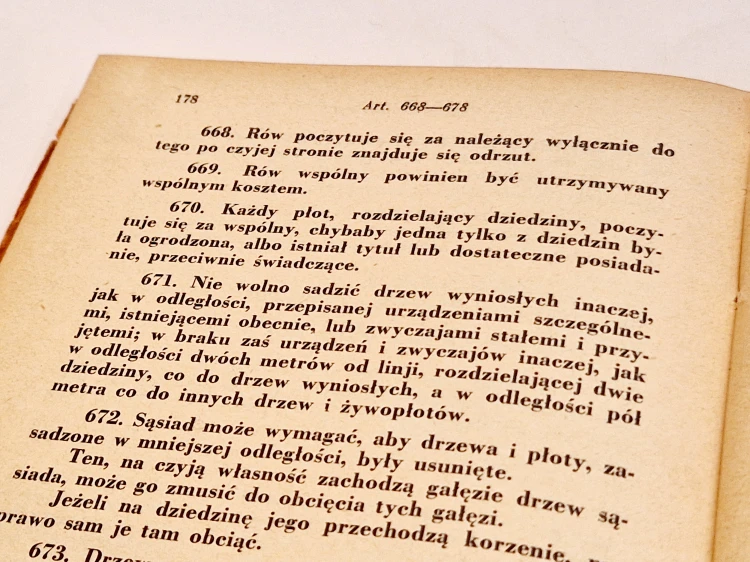 178
Art. 668—678
668. Rów poczytuje się za należący wyłącznie do
tego po czyjej stronie znajduje się odrzut.
669. Rów wspólny powinien być utrzymywany
wspólnym kosztem.
670. Każdy płot, rozdzielający dziedziny, poczy-
tuje się za wspólny, chybaby jedna tylko z dziedzin by-
ła ogrodzona, albo istniał tytuł lub dostateczne posiada-
nie, przeciwnie świadczące.
671. Nie wolno sadzić drzew wyniosłych inaczej,
jak w odległości, przepisanej urządzeniami szczególne-
mi, istniejącemi obecnie, lub zwyczajami stałemi i przy-
jętemi; w braku zaś urządzeń i zwyczajów inaczej, jak
w odległości dwóch metrów od linji, rozdzielającej dwie
dziedziny, co do drzew wyniosłych, a w odległości pół
metra co do innych drzew i żywopłotów.
672. Sąsiad może wymagać, aby drzewa i płoty, za-
sadzone w mniejszej odległości, były usunięte.
Ten, na czyją własność zachodzą gałęzie drzew są-
siada, może go zmusić do obcięcia tych gałęzi.
Jeżeli na dziedzinę jego przechodzą korzenie,
prawo sam je tam obciąć.
673.